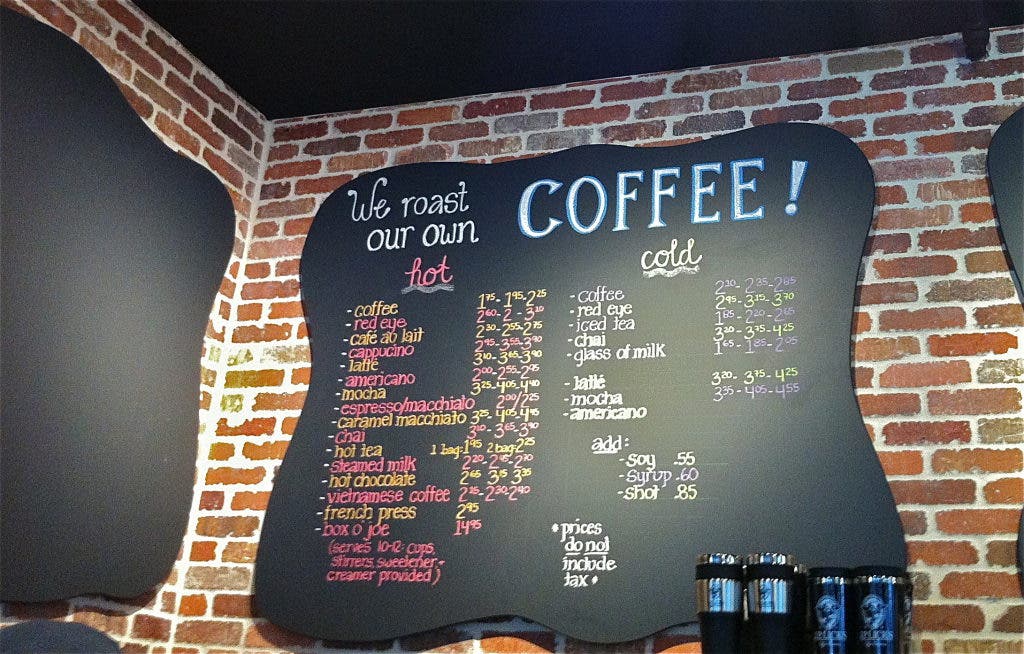 We roast
our own
COFFEE!
hot
- coffee 1.75 - 1.95 - 2.25
- red eye 2.60 - 2 - 3.10
- café au lait 2.30 - 2.55 - 2.75
- cappucino 2.95 - 3.55 - 3.90
- latté 3.10 - 3.65 - 3.90
- americano 2.00 - 2.55 - 2.95
- mocha 3.25 - 4.05 - 4.40
- espresso/macchiato 2.00/2.25
- caramel macchiato 3.25 - 4.05 - 4.45
- chai 3.10 - 3.65 - 3.90
- hot tea 1 bag: 1.95 2 bag: 2.25
- steamed milk 2.20 - 2.45 - 2.70
- hot chocolate 2.65 3.15 3.35
- vietnamese coffee 2.15 - 2.30 - 2.40
- french press 2.95
- box o' joe 14.95
(serves 10-12: cups,
stirrers, sweetener, +
creamer provided)
cold
- coffee 2.10 - 2.35 - 2.85
- red eye 2.95 - 3.15 - 3.70
- iced tea 1.85 - 2.20 - 2.65
- chai 3.20 - 3.75 - 4.25
- glass of milk 1.65 - 1.85 - 2.05
- latté 3.20 - 3.75 - 4.25
- mocha 3.35 - 4.05 - 4.55
- americano
add:
- soy .55
- syrup .60
- shot .85
* prices
do not
include
tax *